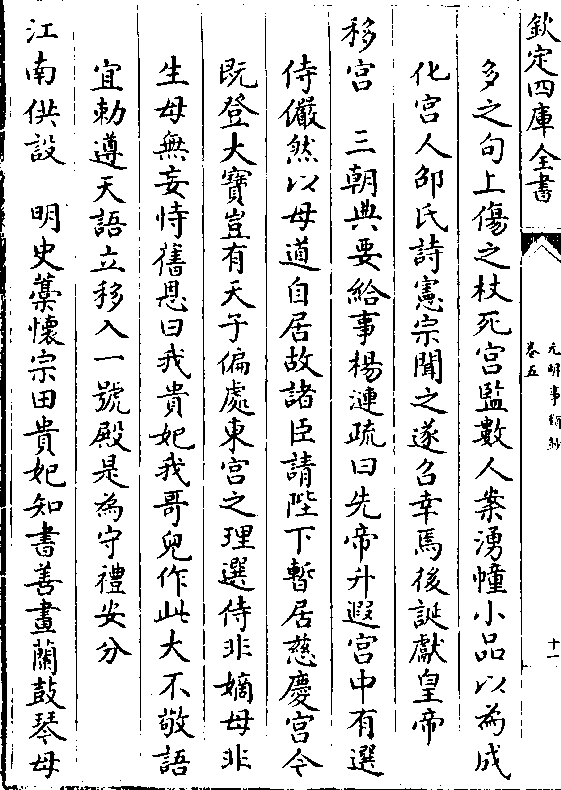 欽定四庫全書
元明事類鈔
卷五
十一
多之句上傷之杖死宮監數人案湧幢小品以為成
化宮人邵氏詩憲宗聞之遂召幸焉後誕獻皇帝
移宮　三朝典要給事楊漣疏曰先帝升遐宮中有選
侍儼然以母道自居故諸臣請陛下暫居慈慶宮今
既登大寶豈有天子偏處東宮之理選侍非嫡母非
生母無妄恃舊恩曰我貴妃我哥兒作此大不敬語
宜勅遵天語立移入一號殿是為守禮安分
江南供設　明史藁懷宗田貴妃知書善畫蘭鼓琴母